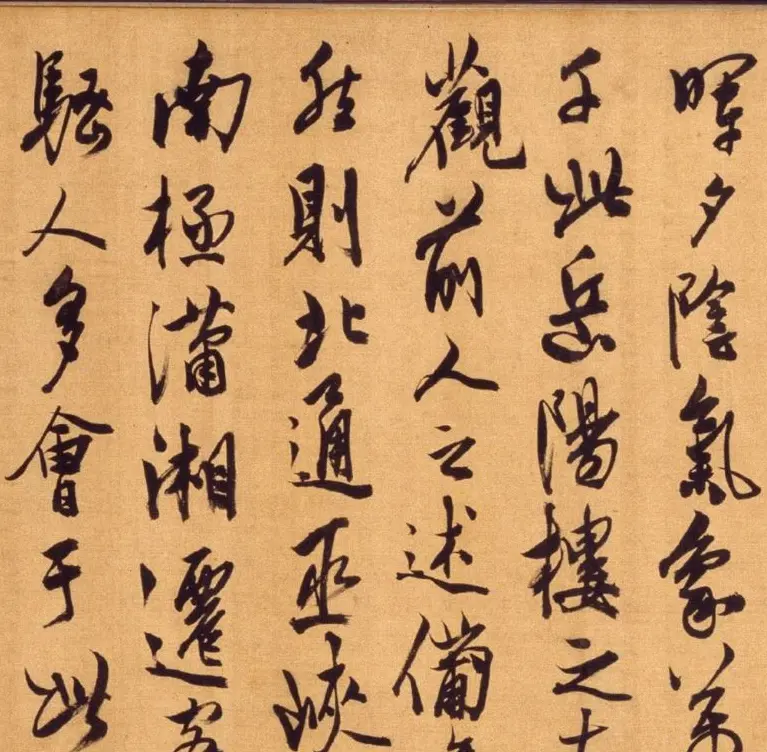 暉夕陰氣象萬
千此岳陽樓之大
觀前人之述備
然則北通巫峽
南極瀟湘遷客
騷人多會于此